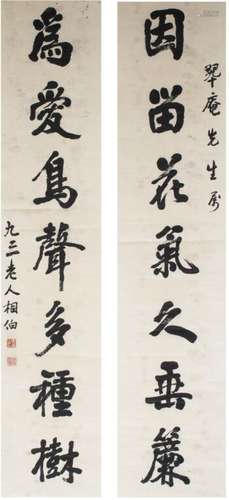 翠庵先生属
因留花氣久垂簾
為愛鳥聲多種樹
九三老人相伯